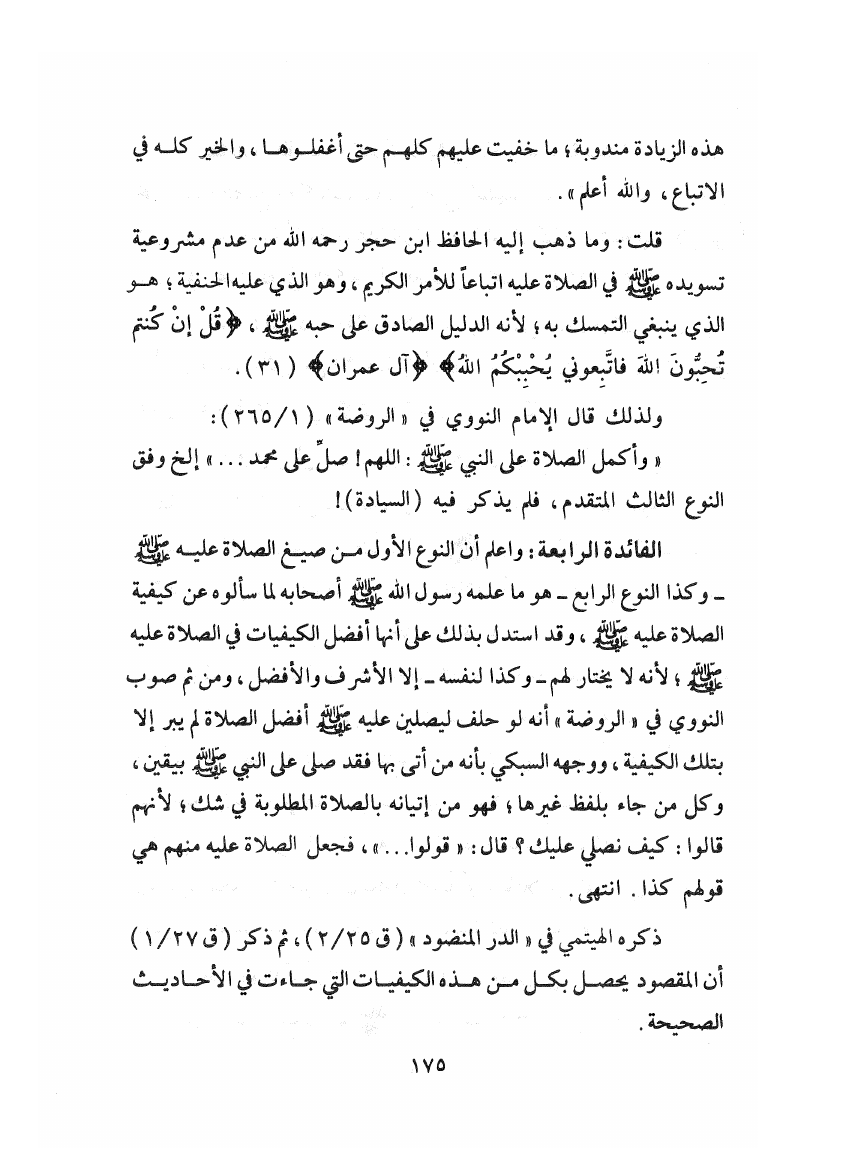 هذه الزيادة مندوبة؛ ما خفيت عليهم كلهم حتى أغفلوها، والخير كله في
الاتباع، والله أعلم».
قلت: وما ذهب إليه الحافظ ابن حجر رحمه الله من عدم مشروعية
تسويده ﷺ في الصلاة عليه اتباعاً للأمر الكريم، وهو الذي عليه الحنفية؛ هو
الذي ينبغي التمسك به؛ لأنه الدليل الصادق على حبه ﷺ، ﴿قُلْ إنْ كُنتم
تُحِبُّونَ اللهَ فاتَّبِعوني يُحْبِبْكُمُ اللهُ﴾ ﴿آل عمران﴾ (٣١).
ولذلك قال الإمام النووي في «الروضة» (١/٢٦٥):
«وأكمل الصلاة على النبي ﷺ: اللهم! صلِّ على محمد ...» إلخ وفق
النوع الثالث المتقدم، فلم يذكر فيه (السيادة)!
الفائدة الرابعة: واعلم أن النوع الأول من صيغ الصلاة عليه ﷺ
ـ وكذا النوع الرابع ـ هو ما علمه رسول الله ﷺ أصحابه لما سألوه عن كيفية
الصلاة عليه ﷺ، وقد استدل بذلك على أنها أفضل الكيفيات في الصلاة عليه
ﷺ؛ لأنه لا يختار لهم ـ وكذا لنفسه ـ إلا الأشرف والأفضل، ومن ثم صوب
النووي في «الروضة» أنه لو حلف ليصلين عليه ﷺ أفضل الصلاة لم يبر إلا
بتلك الكيفية، ووجهه السبكي بأنه من أتى بها فقد صلى على النبي ﷺ بيقين،
وكل من جاء بلفظ غيرها؛ فهو من إتيانه بالصلاة المطلوبة في شك؛ لأنهم
قالوا: كيف نصلي عليك؟ قال: «قولوا...»، فجعل الصلاة عليه منهم هي
قولهم كذا. انتهى.
ذكره الهيتمي في «الدر المنضود» (ق ٢/٢٥)، ثم ذكر (ق ١/٢٧)
أن المقصود يحصل بكل من هذه الكيفيات التي جاءت في الأحاديث
الصحيحة.
١٧٥